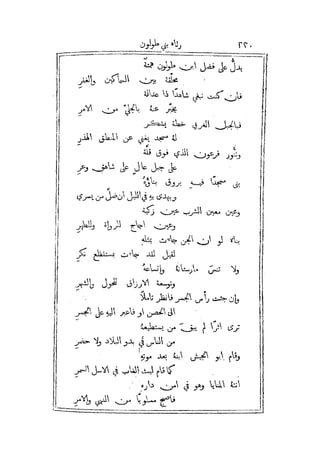 ٢٢٠ رثاء بني طولون
يدلّ على فضل ابن طولون همّة
محلّقة بين السماكين والغفر
فان كنت تبغي شاهدا ذا عدالة
يخبّر عنه بالجليّ من الامر
فبالجبل الغربي خطة يشكر
له مسجد يغني عن المنطق الهذر
وتنور فرعون الذي فوق قلّة
على جبل عال على شاهق وعر
بنى مسجدا فيه يروق بناؤه
ويهدى به في الليل ان ضلّ من يسري
وعين معين الشرب عين زكية
وعين اجاج للرواة وللطهر
بناء لو ان الجن جاءت بمثله
لقيل لقد جاءت بمستفظع نكر
ولا تنس مارستانه واتساعه
وتوسعة الارزاق للحول والشهر
وإن جئت رأس الجسر فانظر تاملا
الى الحصن او فاعبر اليه على الجسر
ترى اثرا لم يبق من يستطيعه
من الناس في بدو البلاد ولا حضر
وقام ابو الجيش ابنه بعد موته
كما قام ليث الغاب في الاسل السمر
اتته المنايا وهو في امن داره
فاصبح مسلوبا من النهي والامر